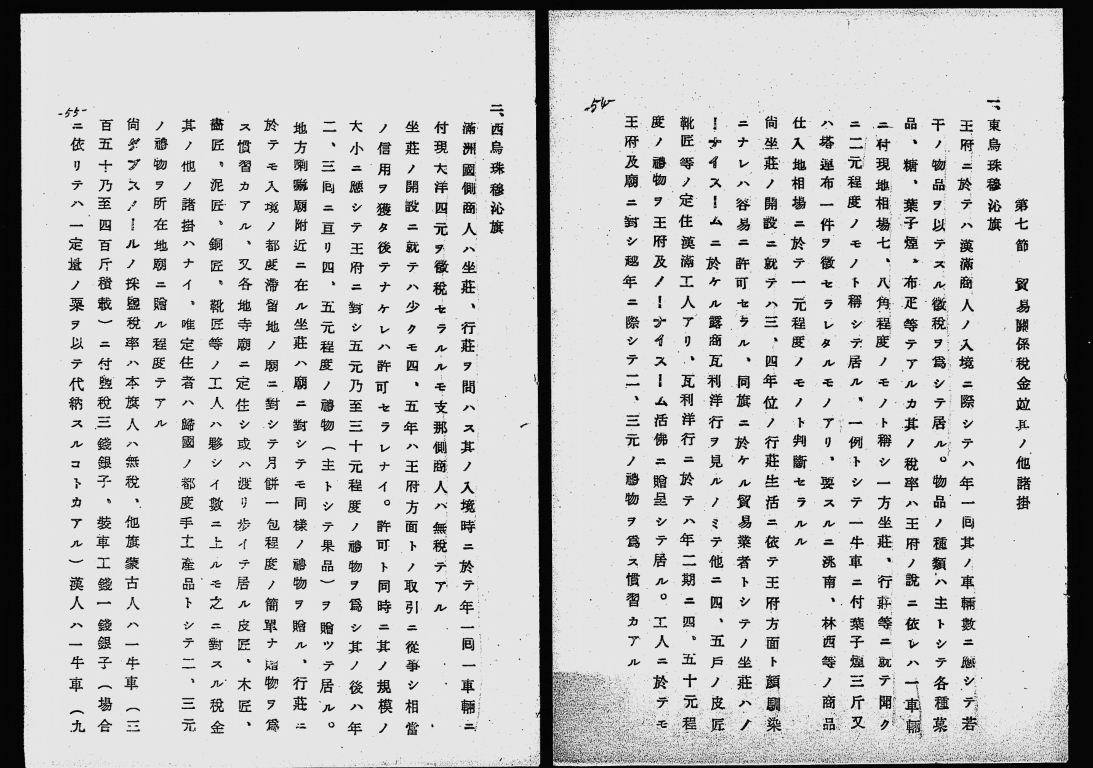 -54-
第七節 貿易關係税金竝其ノ他諸掛
一、東烏珠穆沁旗
王府ニ於テハ漢滿商人ノ入境ニ際シテハ年一囘其ノ車輛數ニ應シテ若
干ノ物品ヲ以テスル徵税ヲ爲シテ居ル。物品ノ種類ハ主トシテ各種菓
品、糖、葉子煙、布疋等テアルカ其ノ税率ハ王府ノ說ニ依レハ一車輛
ニ付現地相場七、八角程度ノモノト稱シ一方坐莊、行莊等ニ就テ聞ク
ニ二元程度ノモノト稱シテ居ル、一例トシテ一牛車ニ付葉子煙三斤又
ハ塔連布一件ヲ徵セラレタルモノアリ、要スルニ洮南、林西等ノ商品
仕入地相場ニ於テ一元程度ノモノト判斷セラルル
尙坐莊ノ開設ニ就テハ三、四年位ノ行莊生活ニ依テ王府方面ト顏馴染
ニナレハ容易ニ許可セラル、同旗ニ於ケル貿易業者トシテノ坐莊ハノ
ーナイスームニ於ケル露商瓦利洋行ヲ見ルノミテ他ニ四、五戶ノ皮匠
靴匠等ノ定住漢滿工人アリ、瓦利洋行ニ於テハ年二期ニ四、五十元程
度ノ禮物ヲ王府及ノーナイスーム活佛ニ贈呈シテ居ル。工人ニ於テモ
王府及廟ニ對シ越年ニ際シテ二、三元ノ禮物ヲ爲ス慣習カアル
-55-
二、西烏珠穆沁旗
滿洲國側商人ハ坐莊、行莊ヲ問ハス其ノ入境時ニ於テ年一囘一車輛ニ
付現大洋四元ヲ徵税セラルルモ支那側商人ハ無税テアル
坐莊ノ開設ニ就テハ少クモ四、五年ハ王府方面トノ取引ニ從事シ相當
ノ信用ヲ獲タ後テナケレハ許可セラレナイ。許可ト同時ニ其ノ規模ノ
大小ニ應シテ王府ニ對シ五元乃至三十元程度ノ禮物ヲ爲シ其ノ後ハ年
二、三囘ニ亘リ四、五元程度ノ禮物(主トシテ果品)ヲ贈ツテ居ル。
地方喇嘛廟附近ニ在ル坐莊ハ廟ニ對シテモ同樣ノ禮物ヲ贈ル、行莊ニ
於テモ入境ノ都度滯留地ノ廟ニ對シテ月餅一包程度ノ簡單ナ贈物ヲ爲
ス慣習カアル、又各地寺廟ニ定住シ或ハ渡リ步イテ居ル皮匠、木匠、
畵匠、泥匠、銅匠、靴匠等ノ工人ハ夥シイ數ニ上ルモ之ニ對スル税金
其ノ他ノ諸掛ハナイ、唯定住者ハ歸國ノ都度手土產品トシテ二、三元
ノ禮物ヲ所在地廟ニ贈ル程度テアル
尙ダブスノールノ採鹽税率ハ本旗人ハ無税、他旗蒙古人ハ一牛車(三
百五十乃至四百斤積載)ニ付鹽税三錢銀子、裝車工錢一錢銀子(場合
ニ依リテハ一定量ノ粟ヲ以テ代納スルコトカアル)漢人ハ一牛車(九